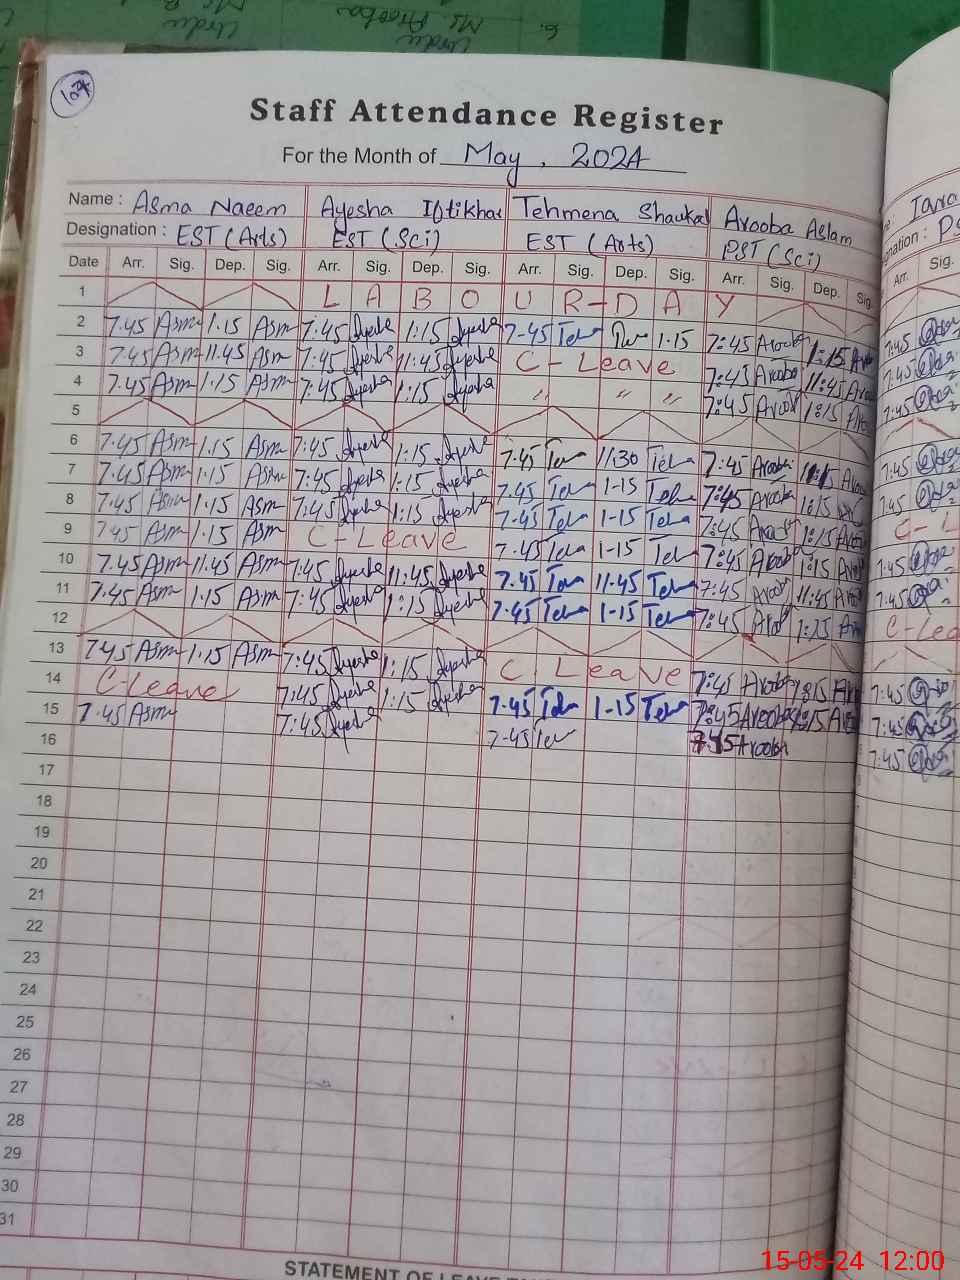 Urdu
Ms. Arooba
Urdu
6.
107
Staff Attendance Register
For the Month of May, 2024
Name : Asma Naeem Ayesha Iftikhar Tehmena Shaukat Arooba Aslam
Designation : EST (Arts) EST (Sci) EST (Arts) PST (Sci)
Date Arr. Sig. Dep. Sig. Arr. Sig. Dep. Sig. Arr. Sig. Dep. Sig. Arr. Sig. Dep. Sig. Arr. Sig.
1 LABOUR-DAY
2 7.45 Asm 1.15 Asm 7:45 Ayesha 1:15 Ayesha 7-45 Teh 1.15 7:45 Arooba 1:15 7:45
3 7.45 Asm 11.45 Asm 7:45 Ayesha 11:45 Ayesha C-Leave 7:45 Arooba 11:45 7:45
4 7.45 Asm 1.15 Asm 7:45 Ayesha 1:15 Ayesha " " " 7:45 Aroob 1:15 7:45
5
6 7.45 Asm 1.15 Asm 7:45 Ayesha 1:15 Ayesha 7.45 Teh 11:30 Teh 7:45 Arooba 7:45
7 7.45 Asm 1.15 Asm 7:45 Ayesha 1:15 Ayesha 7.45 Teh 1-15 Teh 7:45 Arooba 1:15 7:45
8 7.45 Asm 1.15 Asm 7:45 Ayesha 1:15 Ayesha 7-45 Teh 1-15 Teh 7:45 Aroob 1:15 C-L
9 7.45 Asm 1.15 Asm C-Leave 7-45 Teh 1-15 Teh 7:45 Aroob 1:15 7:45
10 7.45 Asm 11.45 Asm 7:45 Ayesha 11:45 Ayesha 7.45 Teh 11.45 Teh 7:45 Aroob 11:45 7:45
11 7.45 Asm 1.15 Asm 7:45 Ayesha 1:15 Ayesha 7.45 Teh 1-15 Teh 7:45 Aroob 1:15 C-Lea
12
13 7.45 Asm 1.15 Asm 7:45 Ayesha 1:15 Ayesha C. Leave 7:45 Arooba 1:15 7:45
14 C-Leave 7:45 Ayesha 1:15 Ayesha 7.45 Teh 1-15 Teh 7:45 Arooba 1:15 7:45
15 7.45 Asm 7:45 Ayesha 7-45 Teh 7:45 Arooba 7:45
16
17
18
19
20
21
22
23
24
25
26
27
28
29
30
31
15-05-24 12:00